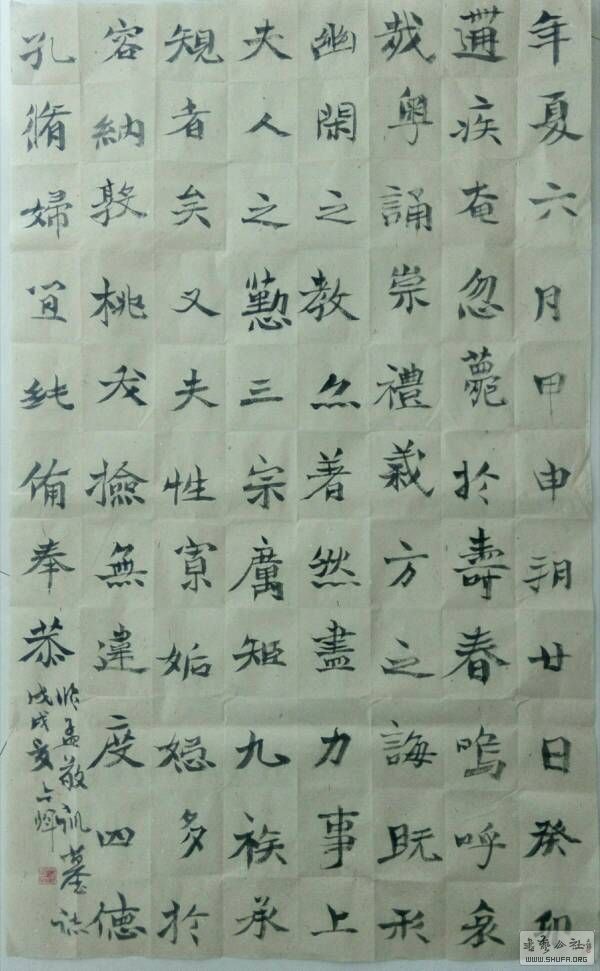 年夏六月甲申朔廿日癸卯
遘疾奄忽薨於壽春嗚呼哀
哉粤誦崇禮義方之誨既形
幽閑之教亦著然盡力事上
夫人之懃三宗厲矩九族承
規者矣又夫性寡妬忌多於
容納敦桃夭撿無違度四德
孔脩婦宜純備奉恭
臨孟敬訓墓誌
戊戌
书艺公社
WWW.SHUFA.ORG